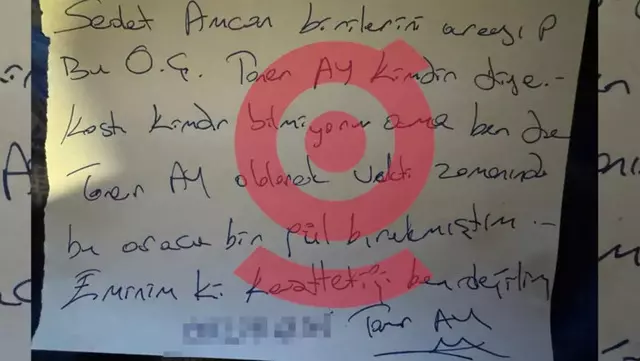 Sedat Amcan birilerini arayıp
Bu O.Ç. Taner AY kimdir diye.-
kastı kimdir bilmiyorum ama ben de
Taner AY olarak vakti zamanında
bu araca bir gül bırakmıştım.-
Eminim ki kastettiği ben değilim
Taner AY